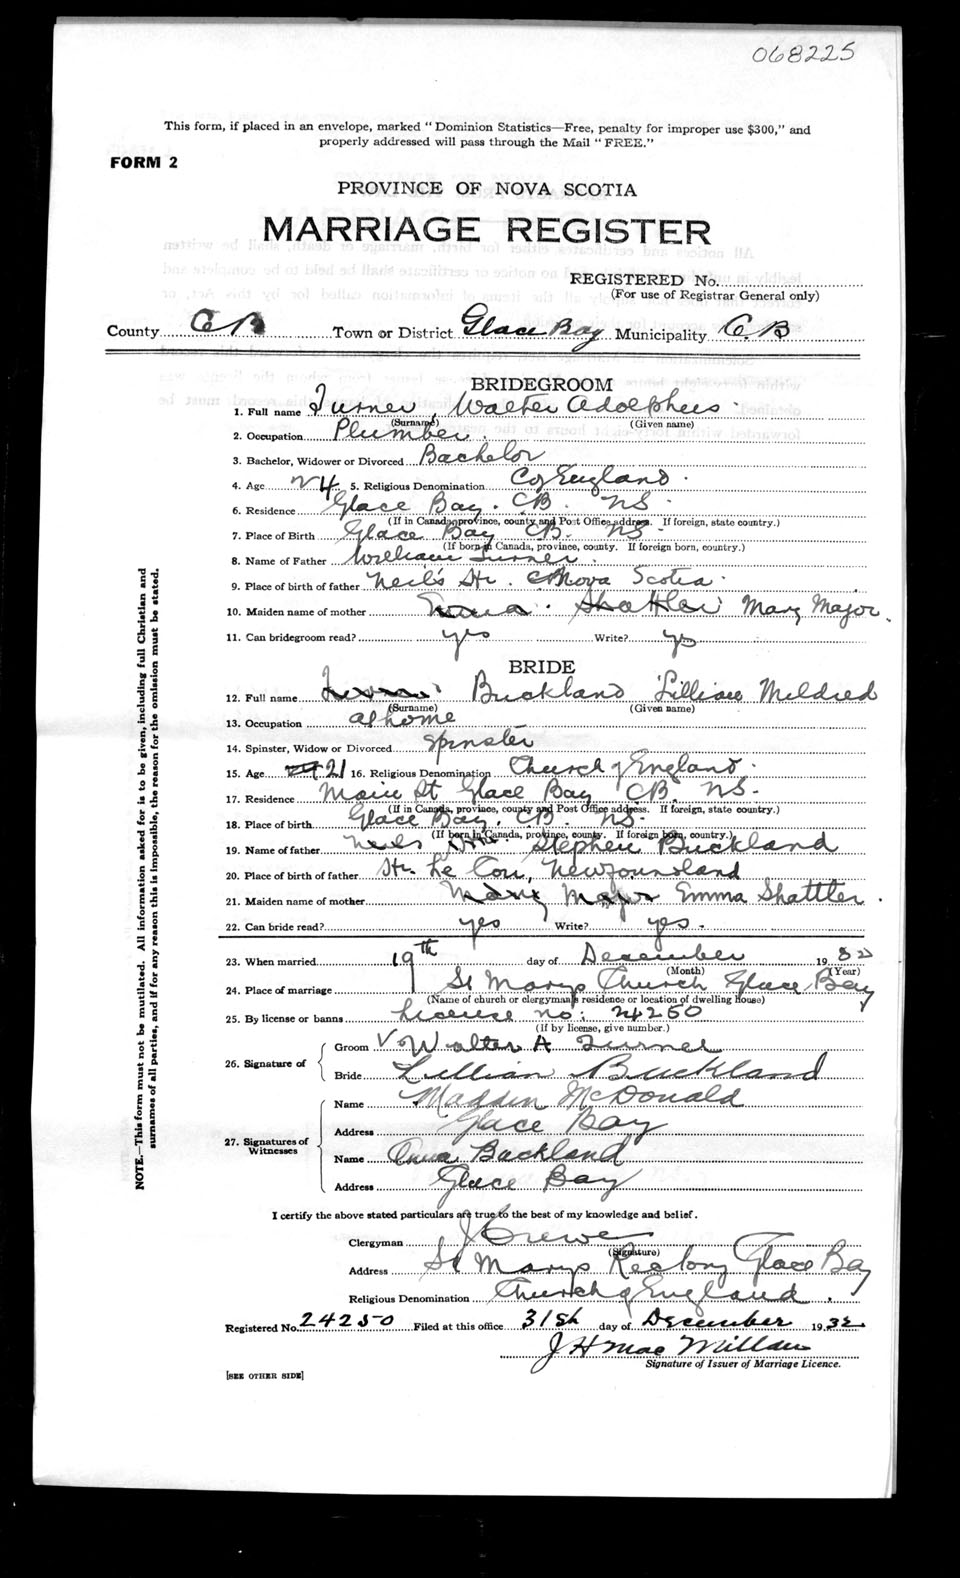 068225
This form, if placed in an envelope, marked "Dominion Statistics—Free, penalty for improper use $300," and
properly addressed will pass through the Mail "FREE."
FORM 2
PROVINCE OF NOVA SCOTIA
MARRIAGE REGISTER
REGISTERED No.
(For use of Registrar General only)
County CB Town or District Glace Bay Municipality C.B
BRIDEGROOM
1. Full name Turner, Walter Adolphus
(Surname) (Given name)
2. Occupation Plumber.
3. Bachelor, Widower or Divorced Bachelor
4. Age 24 5. Religious Denomination C of England
6. Residence Glace Bay. CB. NS
(If in Canada, province, county and Post Office address. If foreign, state country.)
7. Place of Birth Glace Bay CB. NS
(If born in Canada, province, county. If foreign born, country.)
8. Name of Father William Turner.
9. Place of birth of father Neil's Hr. Nova Scotia
10. Maiden name of mother Emma Shattler Mary Major
11. Can bridegroom read? yes Write? yes
BRIDE
12. Full name Buckland Lillian Mildred
(Surname) (Given name)
13. Occupation at home
14. Spinster, Widow or Divorced Spinster
15. Age 21 16. Religious Denomination Church of England
17. Residence Main St Glace Bay CB. NS.
(If in Canada, province, county and Post Office address. If foreign, state country.)
18. Place of birth Glace Bay. CB. NS.
(If born in Canada, province, county. If foreign born, country.)
19. Name of father Stephen Buckland
20. Place of birth of father Newfoundland
21. Maiden name of mother Mary Major Emma Shattler
22. Can bride read? yes Write? yes.
23. When married 19th day of December 1932
(Month) (Year)
24. Place of marriage St Marys Church Glace Bay
(Name of church or clergyman's residence or location of dwelling house)
25. By license or banns License no: 24250
(If by license, give number.)
26. Signature of Groom Walter A Turner
Bride Lillian Buckland
27. Signatures of Witnesses Name Madden McDonald
Address Glace Bay
Name Anna Buckland
Address Glace Bay
I certify the above stated particulars are true to the best of my knowledge and belief.
Clergyman J Crewe
(Signature)
Address St Marys Rectory Glace Bay
Religious Denomination Church of England.
Registered No. 24250 Filed at this office 31st day of December 1932
J H Mac Millan
Signature of Issuer of Marriage Licence.
[SEE OTHER SIDE]
NOTE.—This form must not be mutilated. All information asked for is to be given, including full Christian and
surnames of all parties, and if for any reason this is impossible, the reason for the omission must be stated.